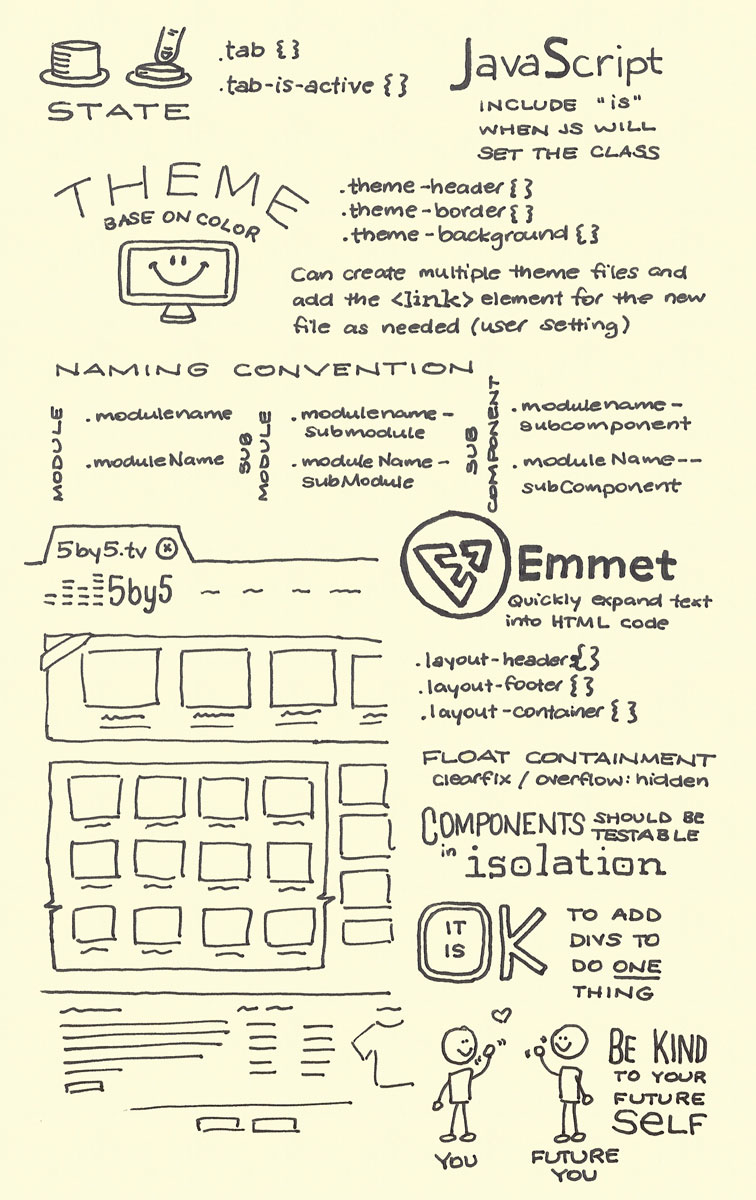 .tab {}
.tab-is-active {}
STATE
JavaScript
INCLUDE "is"
WHEN JS WILL
SET THE CLASS
THEME
BASE ON COLOR
.theme-header{}
.theme-border{}
.theme-background{}
Can create multiple theme files and
add the <link> element for the new
file as needed (user setting)
NAMING CONVENTION
MODULE
.modulename
.moduleName
SUB
MODULE
.modulename-
submodule
.moduleName-
subModule
SUB
COMPONENT
.modulename-
subcomponent
.moduleName--
subComponent
5by5.tv
5by5
Emmet
Quickly expand text
into HTML code
.layout-header{}
.layout-footer {}
.layout-container {}
FLOAT CONTAINMENT
clearfix / overflow: hidden
COMPONENTS SHOULD BE
TESTABLE
in isolation
IT
IS
OK
TO ADD
DIVS TO
DO ONE
THING
BE KIND
TO YOUR
FUTURE
SELF
YOU
FUTURE
YOU